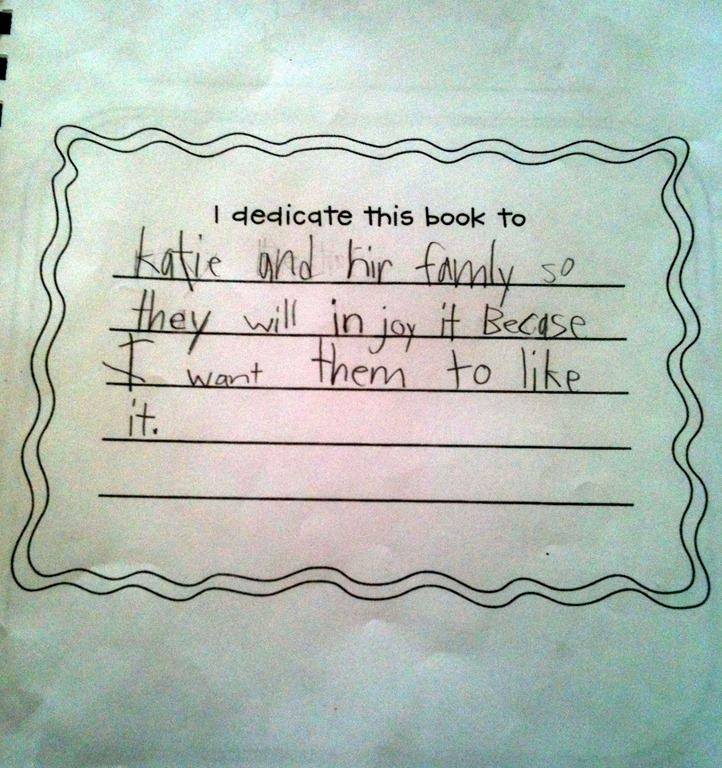 I dedicate this book to
katie and hir famly so
they will in joy it Becase
I want them to like
it.